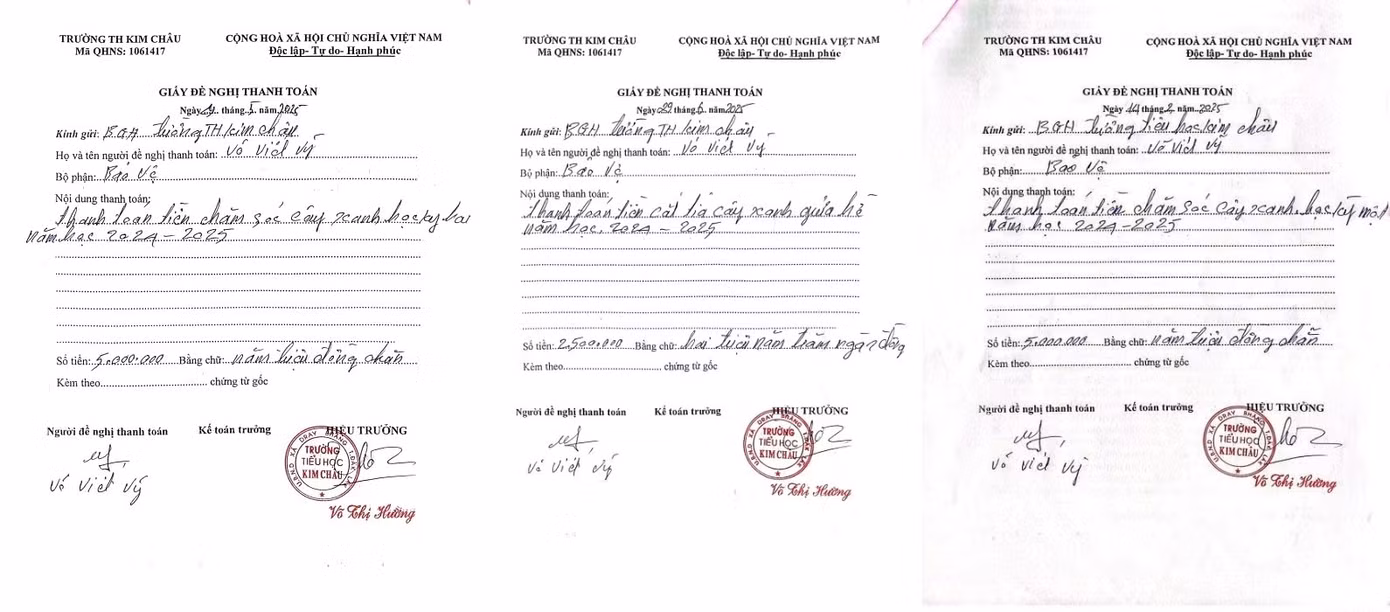 TRƯỜNG TH KIM CHÂU
Mã QHNS: 1061417
CỘNG HOÀ XÃ HỘI CHỦ NGHĨA VIỆT NAM
Độc lập- Tự do- Hạnh phúc
GIẤY ĐỀ NGHỊ THANH TOÁN
Ngày.... tháng.5. năm.2025
Kính gửi: BGH trường TH Kim Châu
Họ và tên người đề nghị thanh toán: Võ Viết Vỹ
Bộ phận: Bảo Vệ
Nội dung thanh toán:
Thanh toán tiền chăm sóc cây xanh học kỳ hai
năm học 2024-2025
Số tiền: 5.000.000 Bằng chữ: năm triệu đồng chẵn
Kèm theo.............................. chứng từ gốc
Người đề nghị thanh toán
Kế toán trưởng
HIỆU TRƯỞNG
TRƯỜNG
TIỂU HỌC
KIM CHÂU
Võ Viết Vỹ
Võ Thị Hường
TRƯỜNG TH KIM CHÂU
Mã QHNS: 1061417
CỘNG HOÀ XÃ HỘI CHỦ NGHĨA VIỆT NAM
Độc lập- Tự do- Hạnh phúc
GIẤY ĐỀ NGHỊ THANH TOÁN
Ngày 29 tháng.6. năm.2025
Kính gửi: BGH trường TH Kim Châu
Họ và tên người đề nghị thanh toán: Võ Viết Vỹ
Bộ phận: Bảo Vệ
Nội dung thanh toán:
Thanh toán tiền cắt tỉa cây xanh giữa hè
năm học. 2024 - 2025
Số tiền: 2.500.000 Bằng chữ: hai triệu năm trăm ngàn đồng
Kèm theo.............................. chứng từ gốc
Người đề nghị thanh toán
Kế toán trưởng
HIỆU TRƯỞNG
TRƯỜNG
TIỂU HỌC
KIM CHÂU
Võ Viết Vỹ
Võ Thị Hường
TRƯỜNG TH KIM CHÂU
Mã QHNS: 1061417
CỘNG HOÀ XÃ HỘI CHỦ NGHĨA VIỆT NAM
Độc lập- Tự do- Hạnh phúc
GIẤY ĐỀ NGHỊ THANH TOÁN
Ngày 14 tháng.2. năm..2025
Kính gửi: BGH trường tiểu học Kim Châu
Họ và tên người đề nghị thanh toán: Võ Viết Vỹ
Bộ phận: Bảo Vệ
Nội dung thanh toán:
Thanh toán tiền chăm sóc cây xanh. học kỳ một
Năm học 2024-2025
Số tiền: 5.000.000 Bằng chữ: năm triệu đồng chẵn
Kèm theo.............................. chứng từ gốc
Người đề nghị thanh toán
Kế toán trưởng
HIỆU TRƯỞNG
TRƯỜNG
TIỂU HỌC
KIM CHÂU
Võ Viết Vỹ
Võ Thị Hường